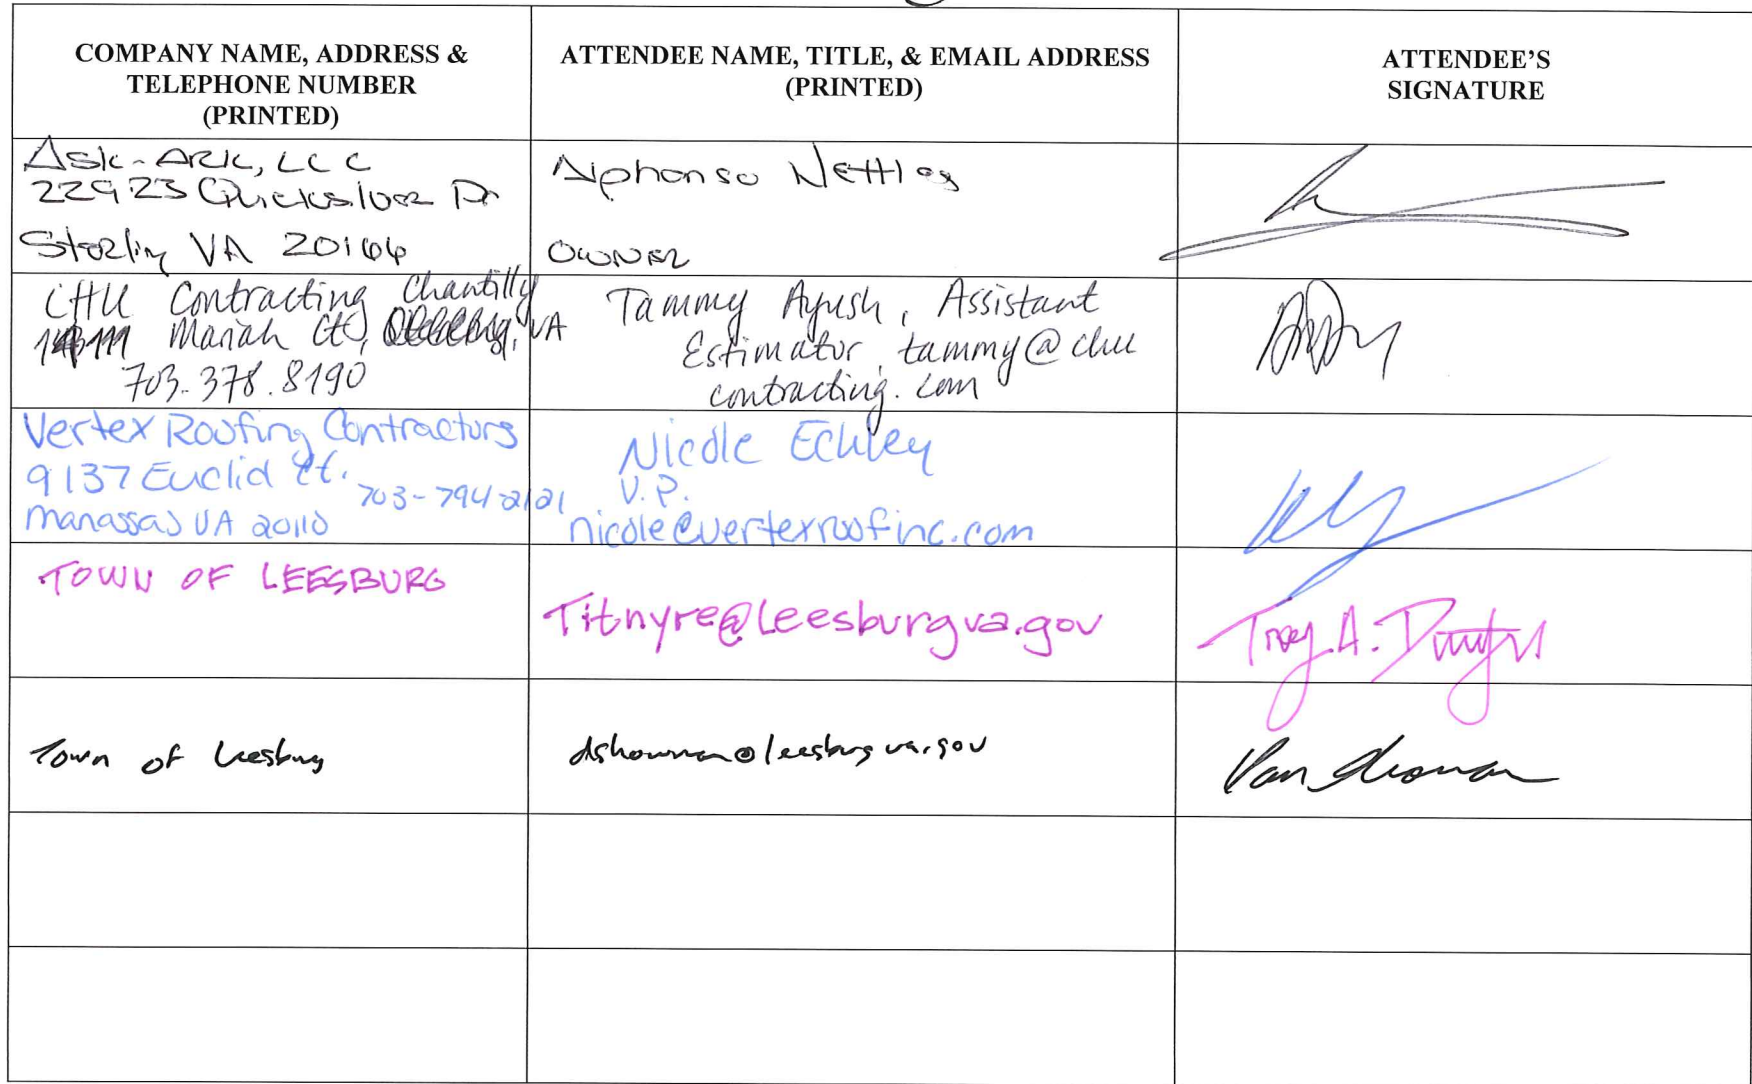 COMPANY NAME, ADDRESS &
TELEPHONE NUMBER
(PRINTED)
ATTENDEE NAME, TITLE, & EMAIL ADDRESS
(PRINTED)
ATTENDEE'S
SIGNATURE
Ask-Ark, LLC
22923 Quicksilver Dr
Sterling VA 20166
Alphonso Nettles
OWNER
CHU Contracting Chantilly
Mariah Ct, VA
703.378.8190
Tammy Ayush, Assistant
Estimator, tammy@chu
contracting.com
Vertex Roofing Contractors
9137 Euclid Ct.
703-794-2121
Manassas VA 20110
Nicole Echley
V.P.
nicole@vertexroofinc.com
TOWN OF LEESBURG
Titnyre@leesburgva.gov
Troy A.
Town of Leesburg
dshowman@leesburgva.gov